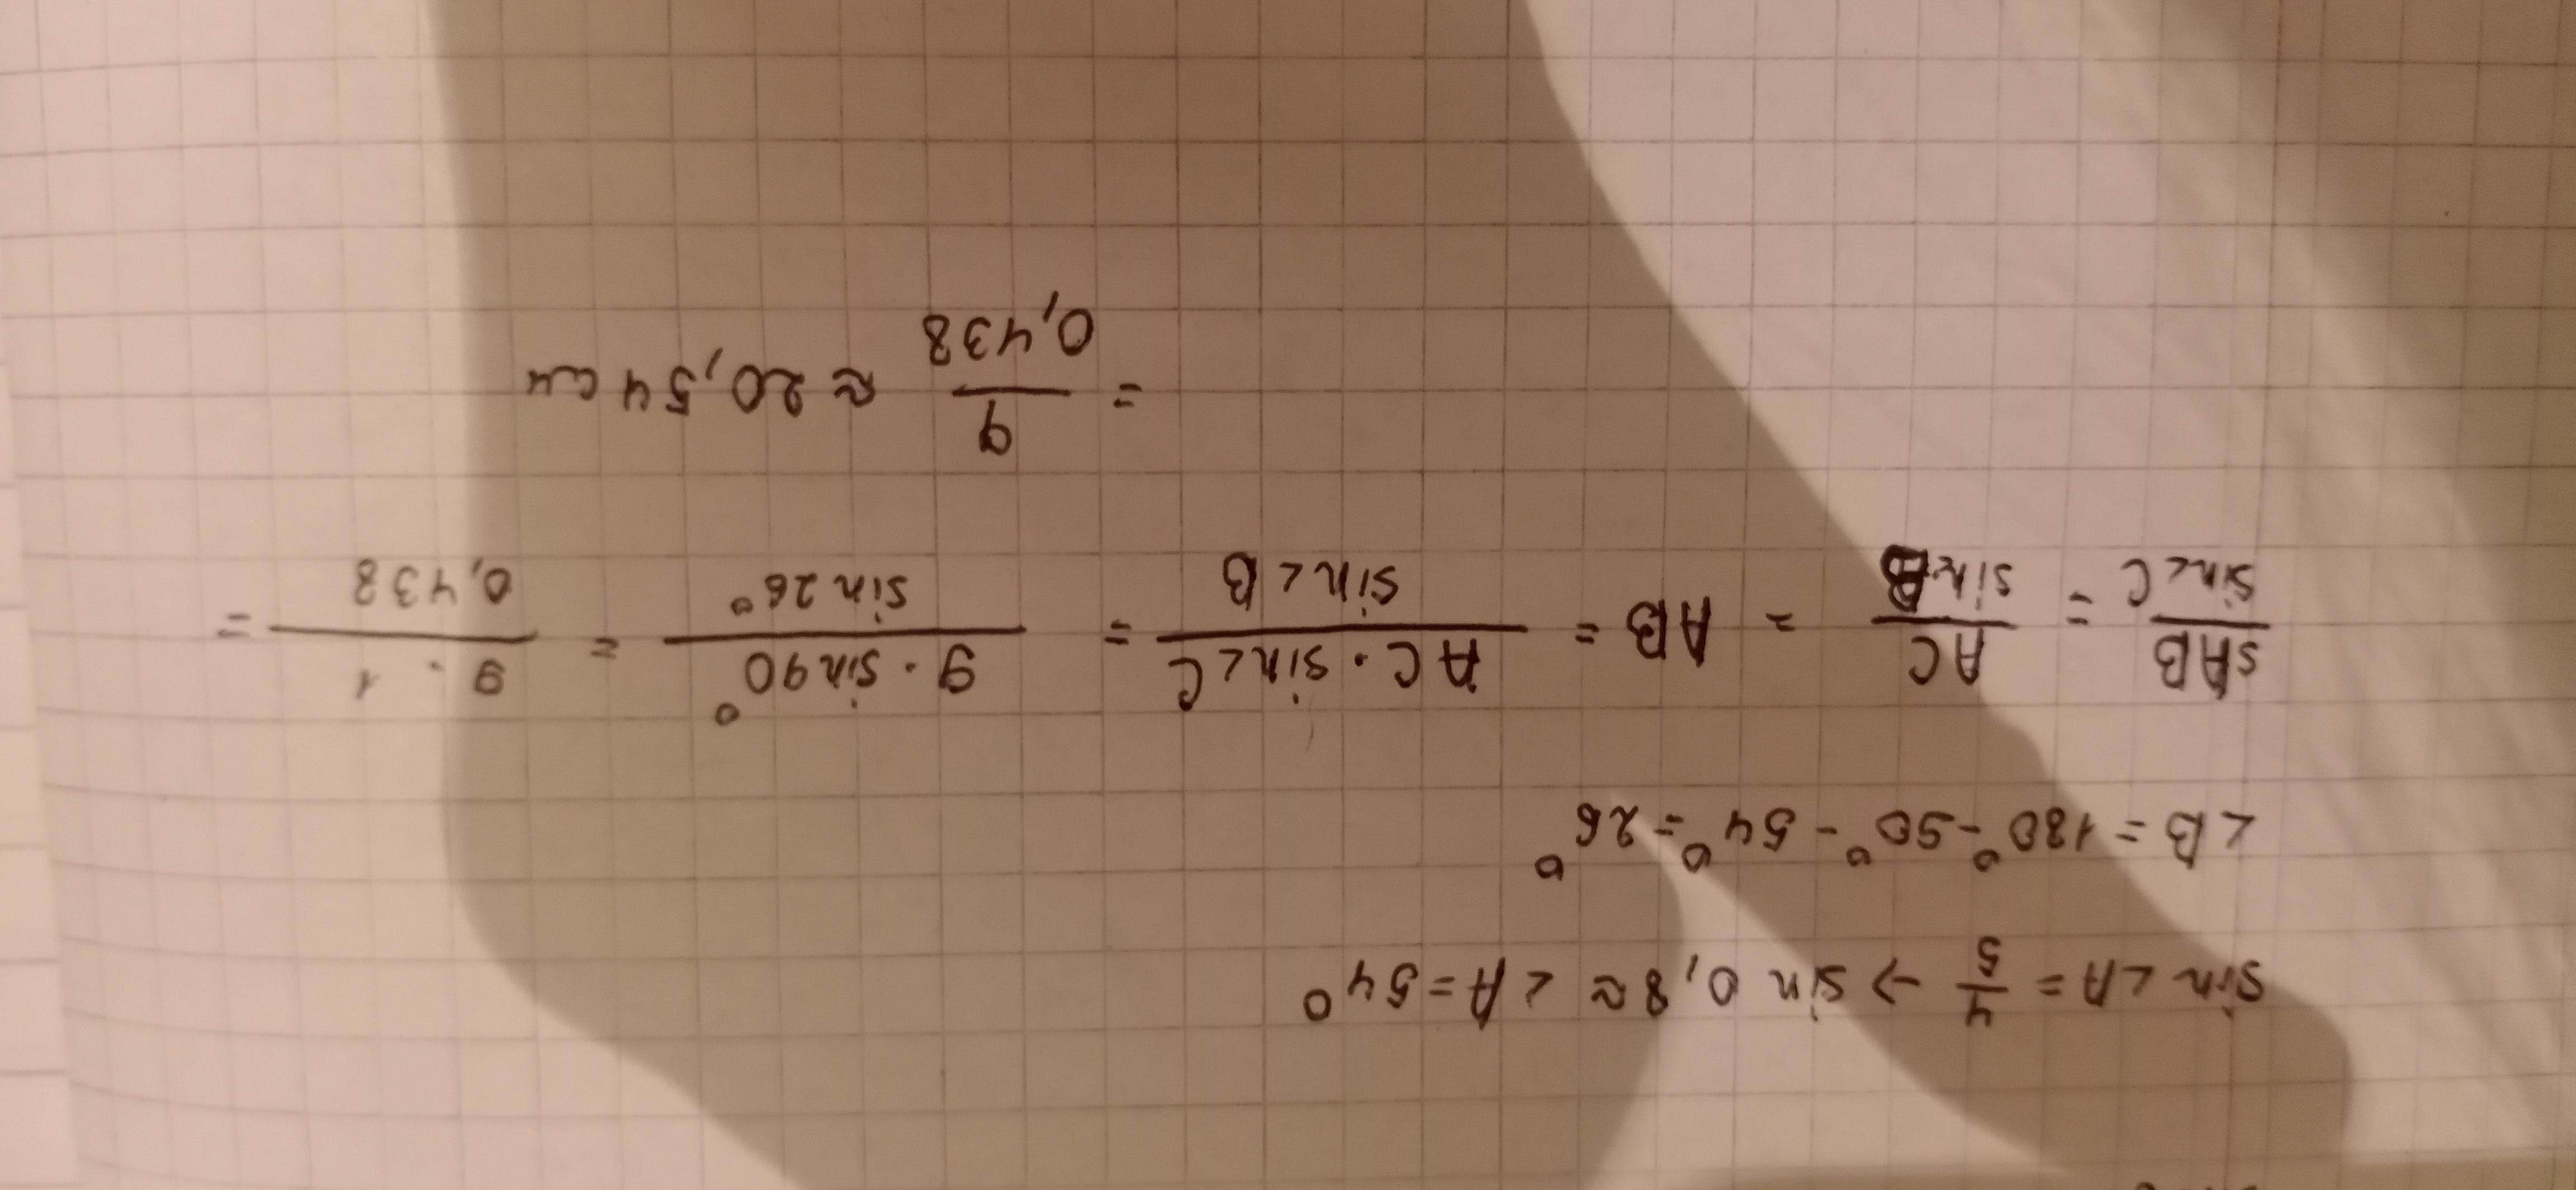 sin ∠A = 4/5 → sin 0,8 ≈ ∠A = 54°
∠B = 180° - 90° - 54° = 26°
SAB/sin∠C = AC/sin∠B = AB = AC · sin∠C/sin∠B = 9 · sin90°/sin26° = 9 · 1/0,438 =
= 9/0,438 ≈ 20,54 см